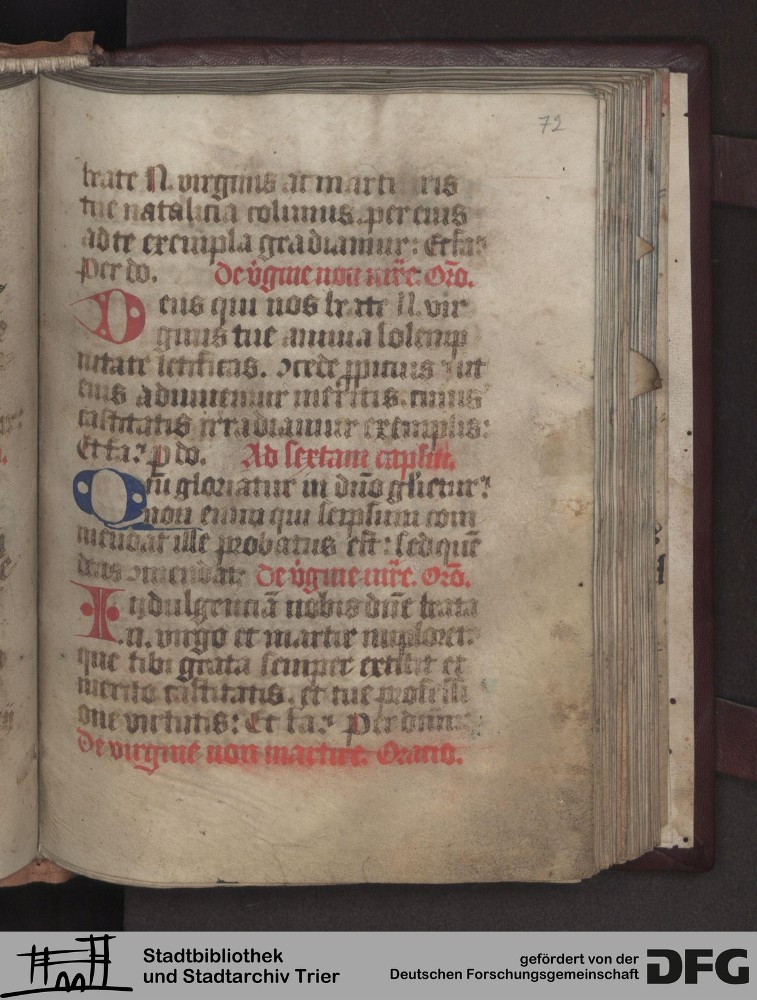 72
beate N. virginis ac martiris
tue natalicia colimus. per eius
ad te exempla gradiamur: Et fa⁊
Per do. De v̄gine non mr̄e. Or̄o.
Deus qui nos beate N. vir
ginis tue annua solemp
nitate letificas. ɔcede ꝓpicius ut
eius adiuuemur meritis. cuius
castitatis irradiamur exemplis:
Et fa⁊ ꝑ do. Ad sextam capl̄m.
Qui gloriatur in dn̄o gl̄ietur⁊
non enim qui seipsum com
mendat ille probatus est: sed quē
deus ɔmendat De v̄gine mr̄e. Or̄o.
Indulgenciā nobis dn̄e beata
.N. virgo et martir imploret:
que tibi grata semper extitit et
merito castitatis. et tue professi
one virtutis: Et fa⁊ Per dnm
De virgine non martire. Oracio.
Stadtbibliothek
und Stadtarchiv Trier
gefördert von der
Deutschen Forschungsgemeinschaft
DFG